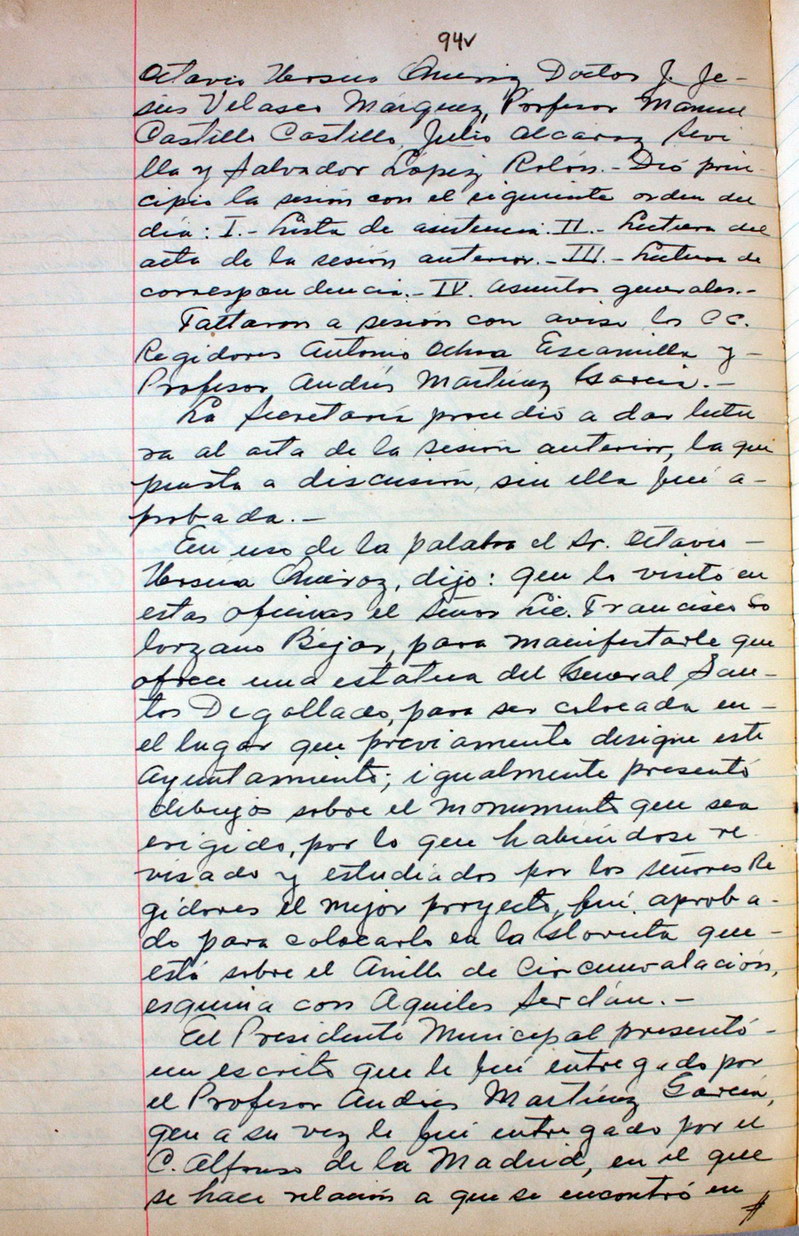 94v
Octavio Urzúa Quiroz, Doctor J. Je-
sús Velasco Márquez, Profesor Manuel
Castillo Castillo, Julio Alcaraz Sevi
lla y Salvador López Rolón.- Dió prin-
cipio la sesión con el siguiente orden del
día: I.- Lista de asistencia. II.- Lectura del
acta de la sesión anterior.- III.- Lectura de
correspondencia.- IV. Asuntos generales.-
Faltaron a sesión con aviso los CC.
Regidores Antonio Ochoa Escamilla y-
Profesor Andrés Martínez García.-
La Secretaría procedió a dar lectu
ra al acta de la sesión anterior, la que
puesta a discusión, sin ella fué a-
probada.-
En uso de la palabra el Sr. Octavio-
Urzúa Quiroz, dijo: que lo visitó en
estas oficinas el Señor Lic. Francisco So
lorzano Béjar, para manifestarle que
ofrece una estatua del General San-
tos Degollado, para ser colocada en-
el lugar que previamente designe este
Ayuntamiento; igualmente presentó
dibujos sobre el monumento que sea
erigido, por lo que habiéndose re
visado y estudiados por los señores Re
gidores el mejor proyecto, fué aproba-
do para colocarlo en la Glorieta que-
está sobre el Anillo de Circunvalación,
esquina con Aquiles Serdán.-
El Presidente Municipal presentó-
un escrito que le fué entregado por
el Profesor Andrés Martínez García,
que a su vez le fué entregado por el
C. Alfonso de la Madrid, en el que
se hace relación a que se encontró en